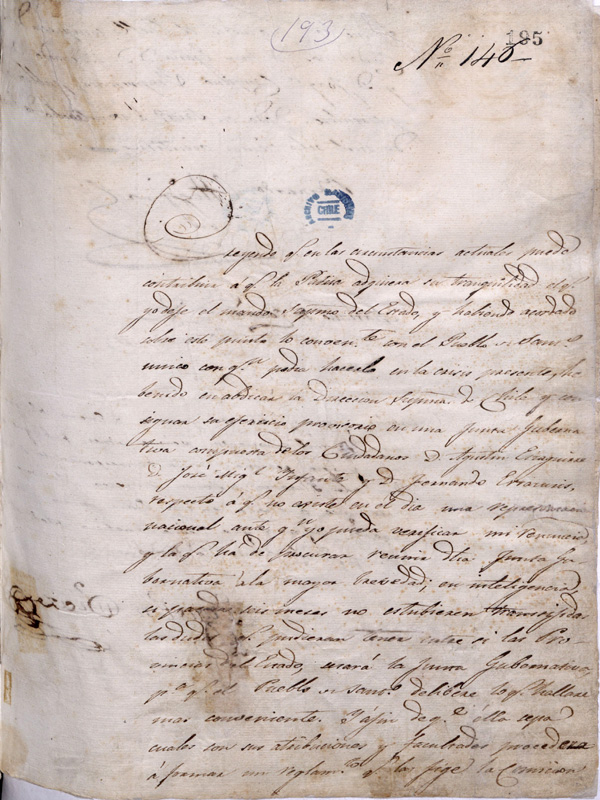 193
195
N.º 140
ARCHIVO NACIONAL
CHILE
Creyendo q.e en las circunstancias actuales puede
contribuir a q.e la Patria adquiera su tranquilidad el q.e
yo deje el mando Supremo del Estado, y habiendo acordado
sobre este punto lo conven.te con el Pueblo de Sant.o
unico con q.n podia hacerlo en la crisis presente, he
benido en abdicar la Direccion Suprema de Chile y con
signar su ejercicio provisorio en una Junta Guberna
tiva compuesta de los Ciudadanos D. Agustin Eyzaguirre
D. José Mig.l Infante y D. Fernando Errazuris,
respecto á q.e no existe en el dia una representacion
nacional ante q.n yo pueda verificar mi renuncia
y la q.e ha de procurar reunir dha Junta Gu
bernativa á la mayor brevedad; en inteligencia
si pasados seis meses no estubieren transigidas
las dudas q.e pudieran aver entre si las Pro-
vincias del Estado, cesará la Junta Gubernativa,
p.a q.e el Pueblo de Sant.o delibere lo q.e hallare
mas conveniente. Y á fin de q.e ella sepa
cuales son sus atribuciones y facultades procederá
á formar un reglam.to q.e las fije la Comision